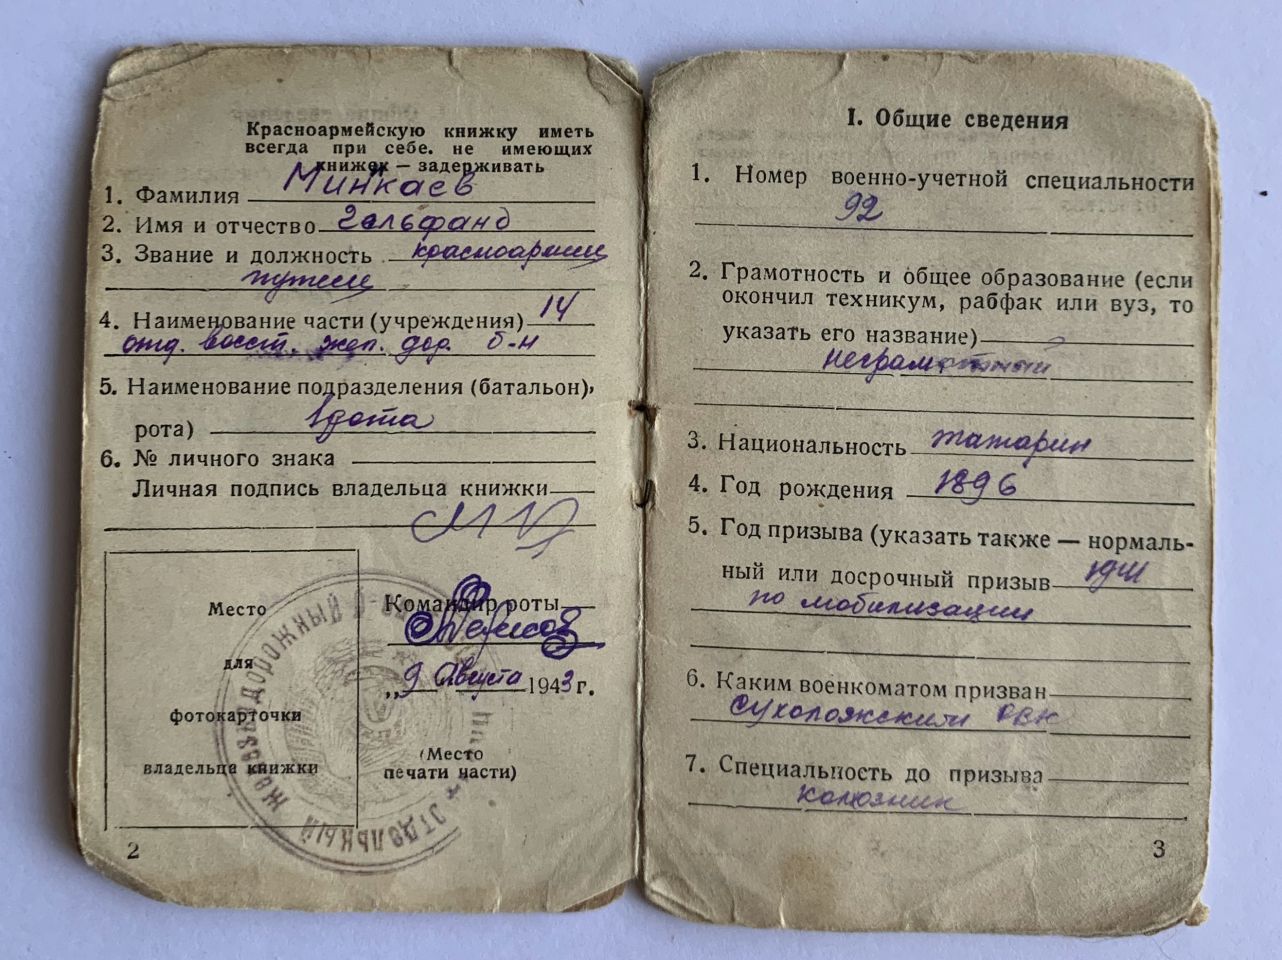 Красноармейскую книжку иметь
всегда при себе. не имеющих
книжек — задерживать
1. Фамилия Минкаев
2. Имя и отчество Гельфанд
3. Звание и должность красноармеец
4. Наименование части (учреждения) 14
отд. восст. жел. дор. б-н
5. Наименование подразделения (батальон),
рота) 1 рота
6. № личного знака
Личная подпись владельца книжки
Место
для
фотокарточки
владельца книжки
Командир роты
„9 Августа 1943 г.
(Место
печати части)
ОТДЕЛЬНЫЙ ЖЕЛЕЗНОДОРОЖНЫЙ
2
I. Общие сведения
1. Номер военно-учетной специальности
92
2. Грамотность и общее образование (если
окончил техникум, рабфак или вуз, то
указать его название)
неграмотный
3. Национальность татарин
4. Год рождения 1896
5. Год призыва (указать также — нормаль-
ный или досрочный призыв
по мобилизации
6. Каким военкоматом призван
Сухоложским РВК
7. Специальность до призыва
колхозник
3